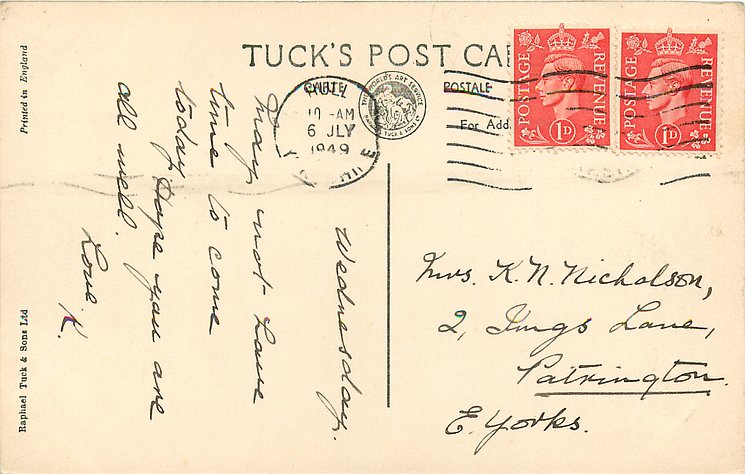 TUCK'S POST CA
CARTE POSTALE
For Add
HULL
10-AM
6 JLY
1949
POSTAGE REVENUE
1D
POSTAGE REVENUE
1D
Wednesday.
May not have
time to come
today. Hope you are
all well.
Love.
K.
Mrs. K. N. Nicholson,
2, Kings Lane,
Patrington.
E. Yorks.
Printed in England
Raphael Tuck & Sons Ltd